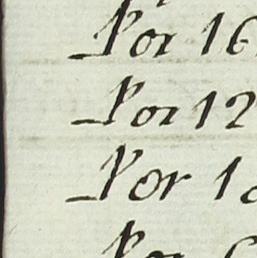 Por 16
Por 12
Por 1
Por